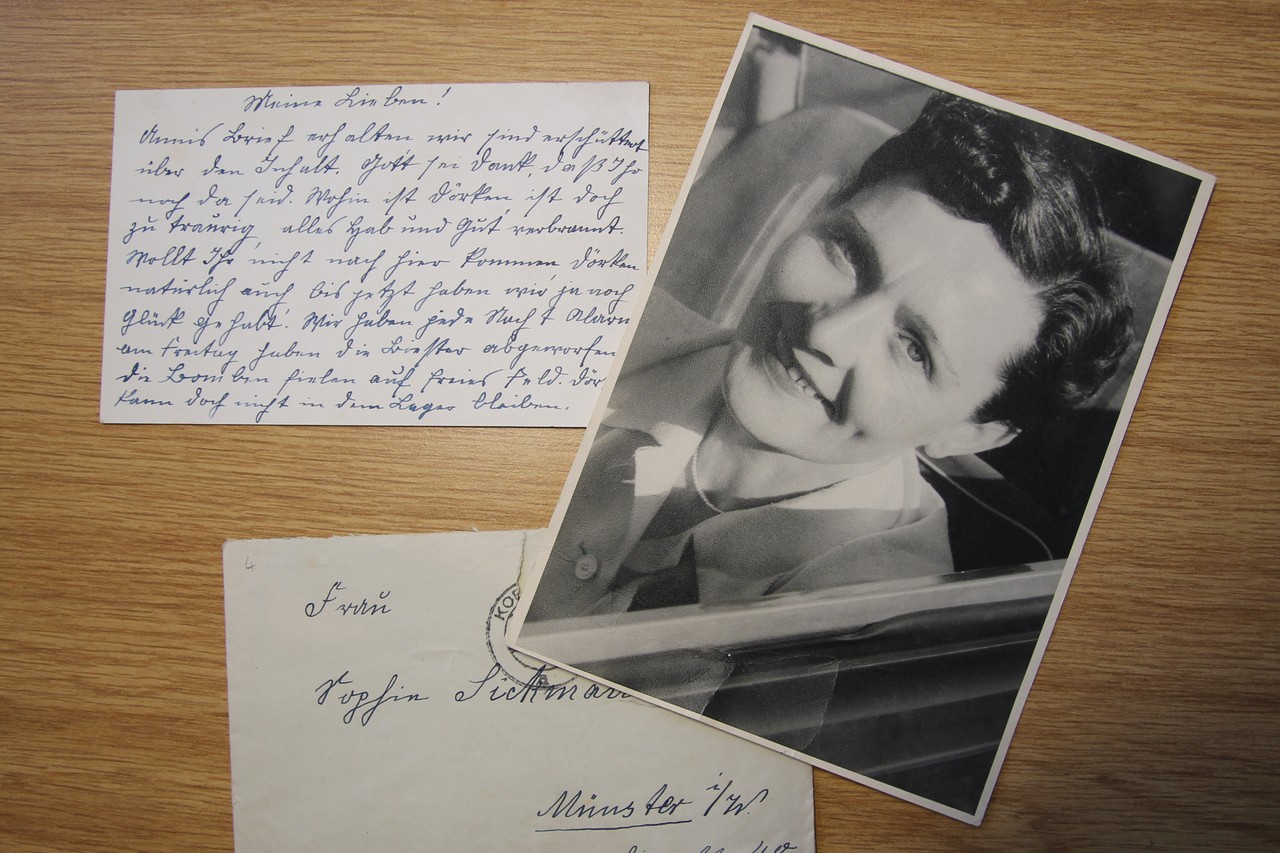 Meine Lieben!
Annis Brief erhalten wir sind erschüttert
über den Inhalt. Gott sei Dank, daß Ihr
noch da seid. Wohin ist Dörken, ist doch
zu traurig alles Hab und Gut verbrannt.
Wollt Ihr nicht nach hier kommen Dörken
natürlich auch bis jetzt haben wir ja noch
Glück gehabt. Wir haben jede Nacht Alarm
am Freitag haben die Biester abgeworfen
die Bomben fielen auf freies Feld. Dör
kann doch nicht in dem Lager bleiben.
4
Frau
Sophie Sickmann
Münster i/W.